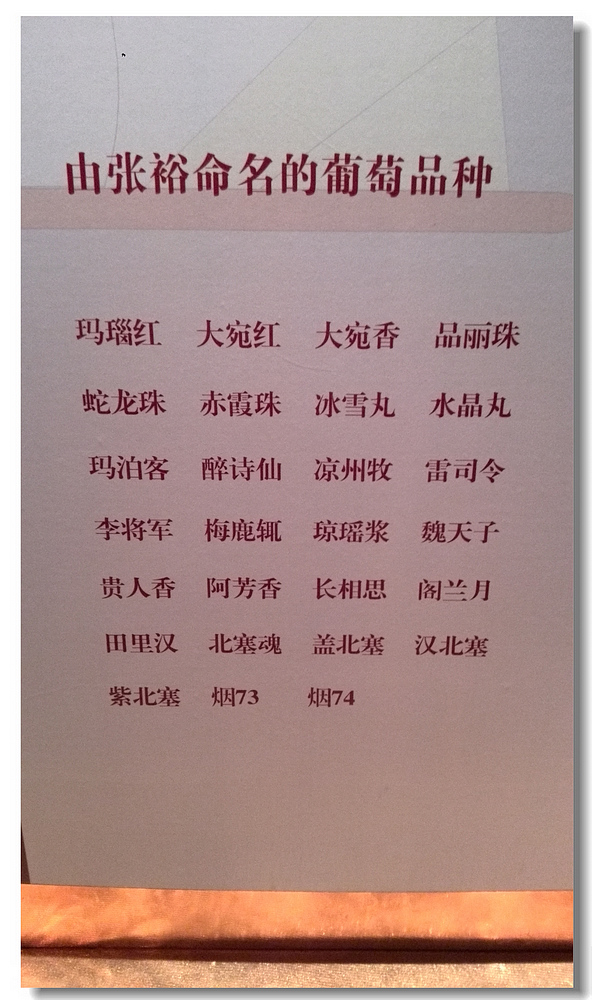 由张裕命名的葡萄品种
玛瑙红 大宛红 大宛香 品丽珠
蛇龙珠 赤霞珠 冰雪丸 水晶丸
玛泊客 醉诗仙 凉州牧 雷司令
李将军 梅鹿辄 琼瑶浆 魏天子
贵人香 阿芳香 长相思 阁兰月
田里汉 北塞魂 盖北塞 汉北塞
紫北塞 烟73 烟74